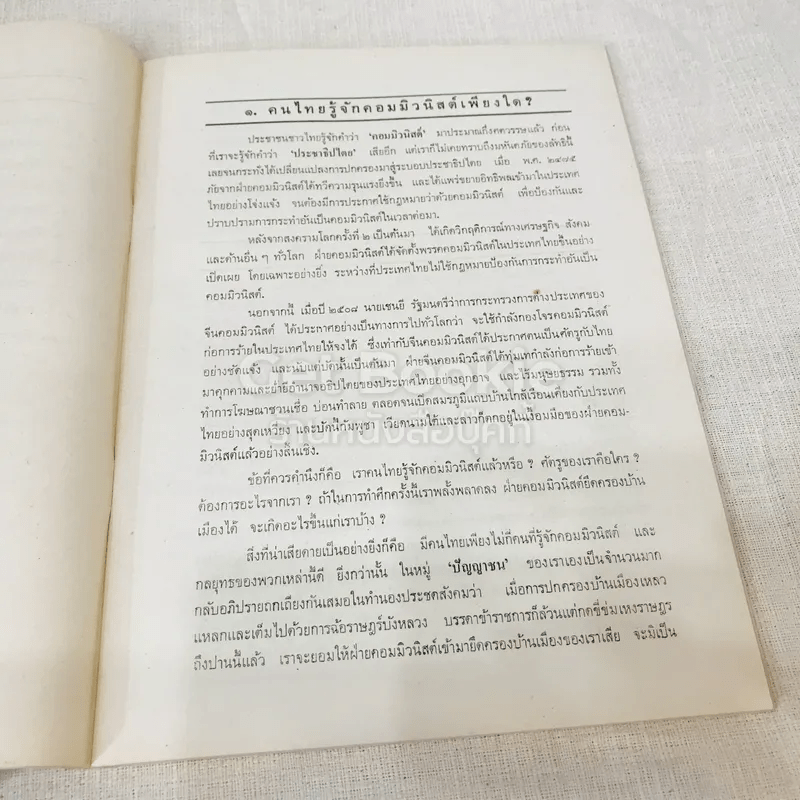 ๑. คนไทยรู้จักคอมมิวนิสต์เพียงใด?
ประชาชนชาวไทยรู้จักคำว่า 'คอมมิวนิสต์' มาประมาณกึ่งศตวรรษแล้ว ก่อน
ที่เราจะรู้จักคำว่า 'ประชาธิปไตย' เสียอีก แต่เราก็ไม่เคยทราบถึงมหันตภัยของลัทธินี้
เลยจนกระทั่งได้เปลี่ยนแปลงการปกครองมาสู่ระบอบประชาธิปไตย เมื่อ พ.ศ. ๒๔๗๕
ภัยจากฝ่ายคอมมิวนิสต์ได้ทวีความรุนแรงยิ่งขึ้น และได้แพร่ขยายอิทธิพลเข้ามาในประเทศ
ไทยอย่างโจ่งแจ้ง จนต้องมีการประกาศใช้กฎหมายว่าด้วยคอมมิวนิสต์ เพื่อป้องกันและ
ปราบปรามการกระทำอันเป็นคอมมิวนิสต์ในเวลาต่อมา.
หลังจากสงครามโลกครั้งที่ ๒ เป็นต้นมา ได้เกิดวิกฤติการณ์ทางเศรษฐกิจ สังคม
และด้านอื่น ๆ ทั่วโลก ฝ่ายคอมมิวนิสต์ได้จัดตั้งพรรคคอมมิวนิสต์ในประเทศไทยขึ้นอย่าง
เปิดเผย โดยเฉพาะอย่างยิ่ง ระหว่างที่ประเทศไทยไม่ใช้กฎหมายป้องกันการกระทำอันเป็น
คอมมิวนิสต์.
นอกจากนี้ เมื่อปี ๒๕๐๘ นายเชนยี รัฐมนตรีว่าการกระทรวงการต่างประเทศของ
จีนคอมมิวนิสต์ ได้ประกาศอย่างเป็นทางการไปทั่วโลกว่า จะใช้กำลังกองโจรคอมมิวนิสต์
ก่อการร้ายในประเทศไทยให้จงได้ ซึ่งเท่ากับจีนคอมมิวนิสต์ได้ประกาศตนเป็นศัตรูกับไทย
อย่างชัดแจ้ง และนับแต่บัดนั้นเป็นต้นมา ฝ่ายจีนคอมมิวนิสต์ได้ทุ่มเทกำลังก่อการร้ายเข้า
มาคุกคามและย่ำยีอำนาจอธิปไตยของประเทศไทยอย่างอุกอาจ และไร้มนุษยธรรม รวมทั้ง
ทำการโฆษณาชวนเชื่อ บ่อนทำลาย ตลอดจนเปิดสมรภูมิแถบบ้านใกล้เรือนเคียงกับประเทศ
ไทยอย่างสุดเหวี่ยง และบัดนี้กัมพูชา เวียดนามใต้และลาวก็ตกอยู่ในเงื้อมมือของฝ่ายคอม-
มิวนิสต์แล้วอย่างสิ้นเชิง.
ข้อที่ควรคำนึงก็คือ เราคนไทยรู้จักคอมมิวนิสต์แล้วหรือ ? ศัตรูของเราคือใคร ?
ต้องการอะไรจากเรา ? ถ้าในการทำศึกครั้งนี้เราพลั้งพลาดลง ฝ่ายคอมมิวนิสต์ยึดครองบ้าน
เมืองได้ จะเกิดอะไรขึ้นแก่เราบ้าง ?
สิ่งที่น่าเสียดายเป็นอย่างยิ่งก็คือ มีคนไทยเพียงไม่กี่คนที่รู้จักคอมมิวนิสต์ และ
กลยุทธของพวกเหล่านี้ดี ยิ่งกว่านั้น ในหมู่ 'ปัญญาชน' ของเราเองเป็นจำนวนมาก
กลับอภิปรายถกเถียงกันเสมอในทำนองประชดสังคมว่า เมื่อการปกครองบ้านเมืองเหลว
แหลกและเต็มไปด้วยการฉ้อราษฎร์บังหลวง บรรดาข้าราชการก็ล้วนแต่กดขี่ข่มเหงราษฎร
ถึงปานนี้แล้ว เราจะยอมให้ฝ่ายคอมมิวนิสต์เข้ามายึดครองบ้านเมืองของเราเสีย จะมิเป็น
ร้านหนังสือบุ๊คกี้